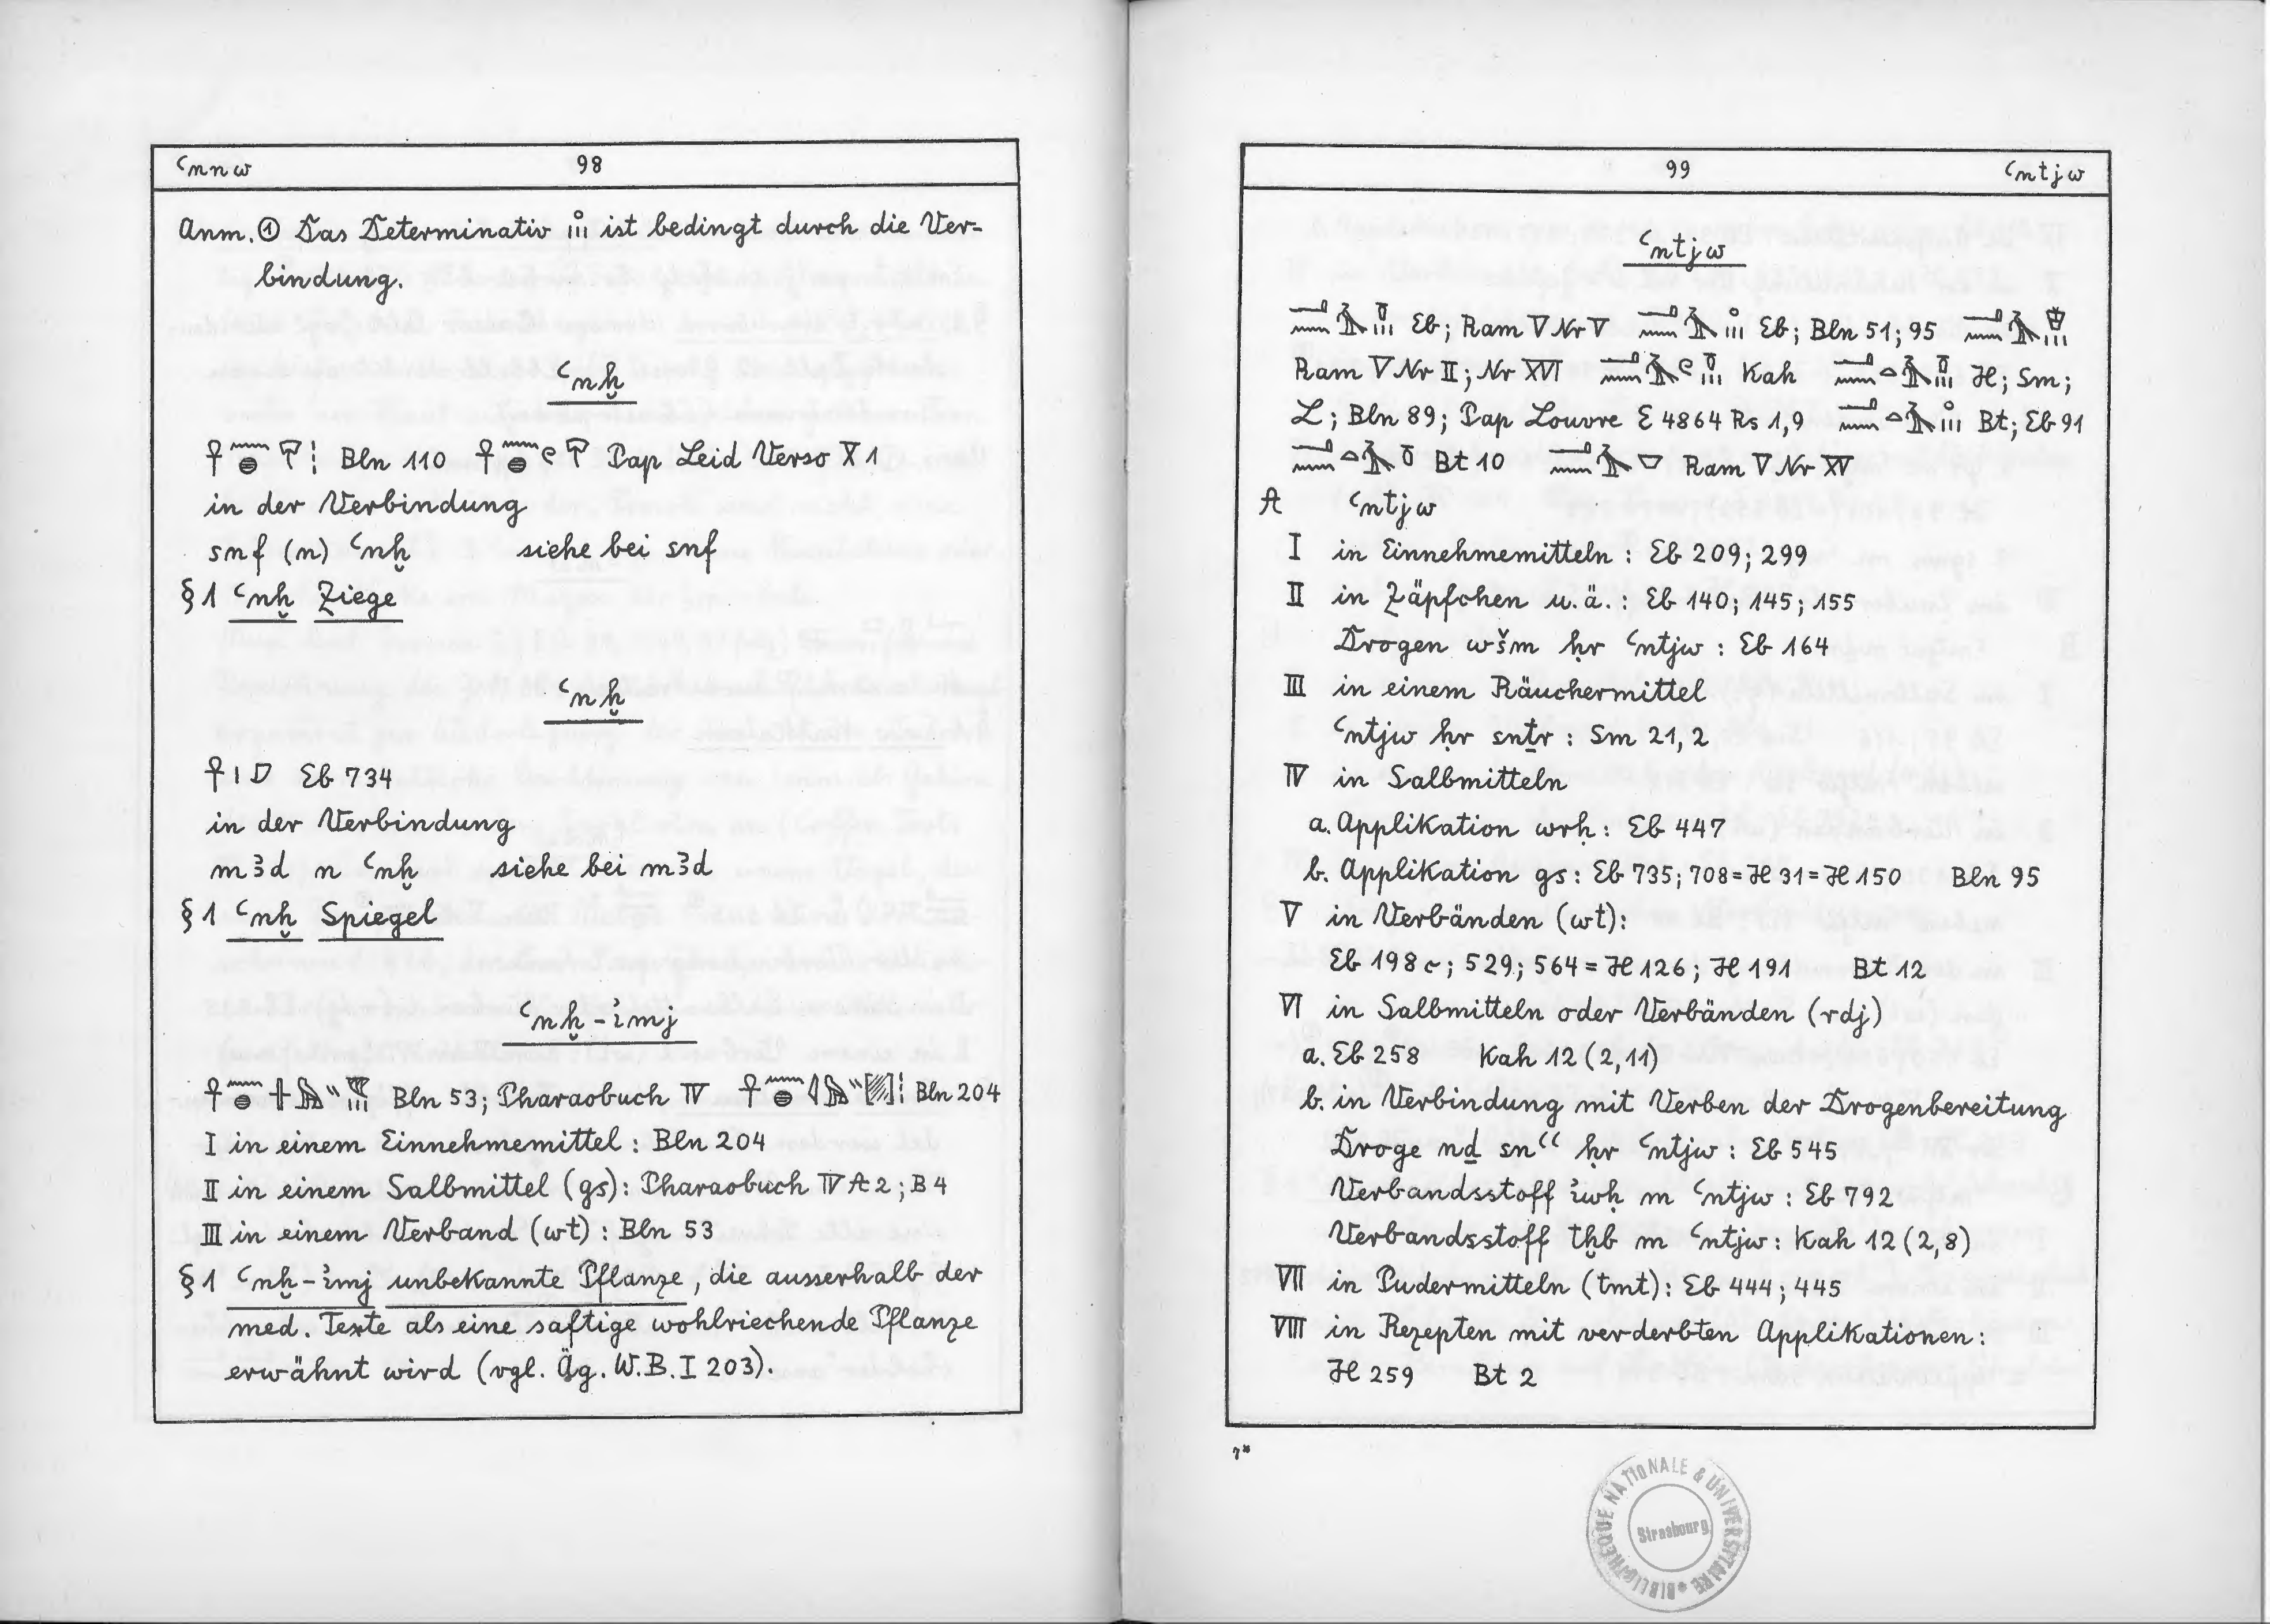 ꜥnnw 98
Anm. ① Das Determinativ 𓏌𓏥 ist bedingt durch die Ver-
bindung.
ꜥnḫ
Bln 110 Pap Leid Verso X 1
in der Verbindung
snf (n) ꜥnḫ siehe bei snf
§ 1 ꜥnḫ Ziege
ꜥnḫ
Eb 734
in der Verbindung
mꜣd n ꜥnḫ siehe bei mꜣd
§ 1 ꜥnḫ Spiegel
ꜥnḫ-ἰmj
Bln 53; Pharaobuch IV Bln 204
I in einem Einnehmemittel : Bln 204
II in einem Salbmittel (gs): Pharaobuch IV A 2; B 4
III in einem Verband (wt) : Bln 53
§ 1 ꜥnḫ-ἰmj unbekannte Pflanze, die ausserhalb der
med. Texte als eine saftige wohlriechende Pflanze
erwähnt wird (vgl. Äg. W.B. I 203).
99 ꜥntjw
ꜥntjw
Eb; Ram V Nr V Eb; Bln 51; 95
Ram V Nr II; Nr XVI Kah H; Sm;
L; Bln 89; Pap Louvre E 4864 Rs 1,9 Bt; Eb 91
Bt 10 Ram V Nr XV
A ꜥntjw
I in Einnehmemitteln : Eb 209; 299
II in Zäpfchen u. ä. : Eb 140; 145; 155
Drogen wšm ḥr ꜥntjw : Eb 164
III in einem Räuchermittel
ꜥntjw ḥr snṯr : Sm 21,2
IV in Salbmitteln
a. Applikation wrḥ : Eb 447
b. Applikation gs : Eb 735; 708 = H 31 = H 150 Bln 95
V in Verbänden (wt):
Eb 198 c; 529; 564 = H 126; H 191 Bt 12
VI in Salbmitteln oder Verbänden (rdj)
a. Eb 258 Kah 12 (2,11)
b. in Verbindung mit Verben der Drogenbereitung
Droge nḏ snꜥꜥ ḥr ꜥntjw : Eb 545
Verbandsstoff ἰwḥ m ꜥntjw : Eb 792
Verbandsstoff tḫb m ꜥntjw : Kah 12 (2,8)
VII in Pudermitteln (tmt): Eb 444; 445
VIII in Rezepten mit verderbten Applikationen :
H 259 Bt 2
7*
BIBLIOTHEQUE NATIONALE & UNIVERSITAIRE
Strasbourg